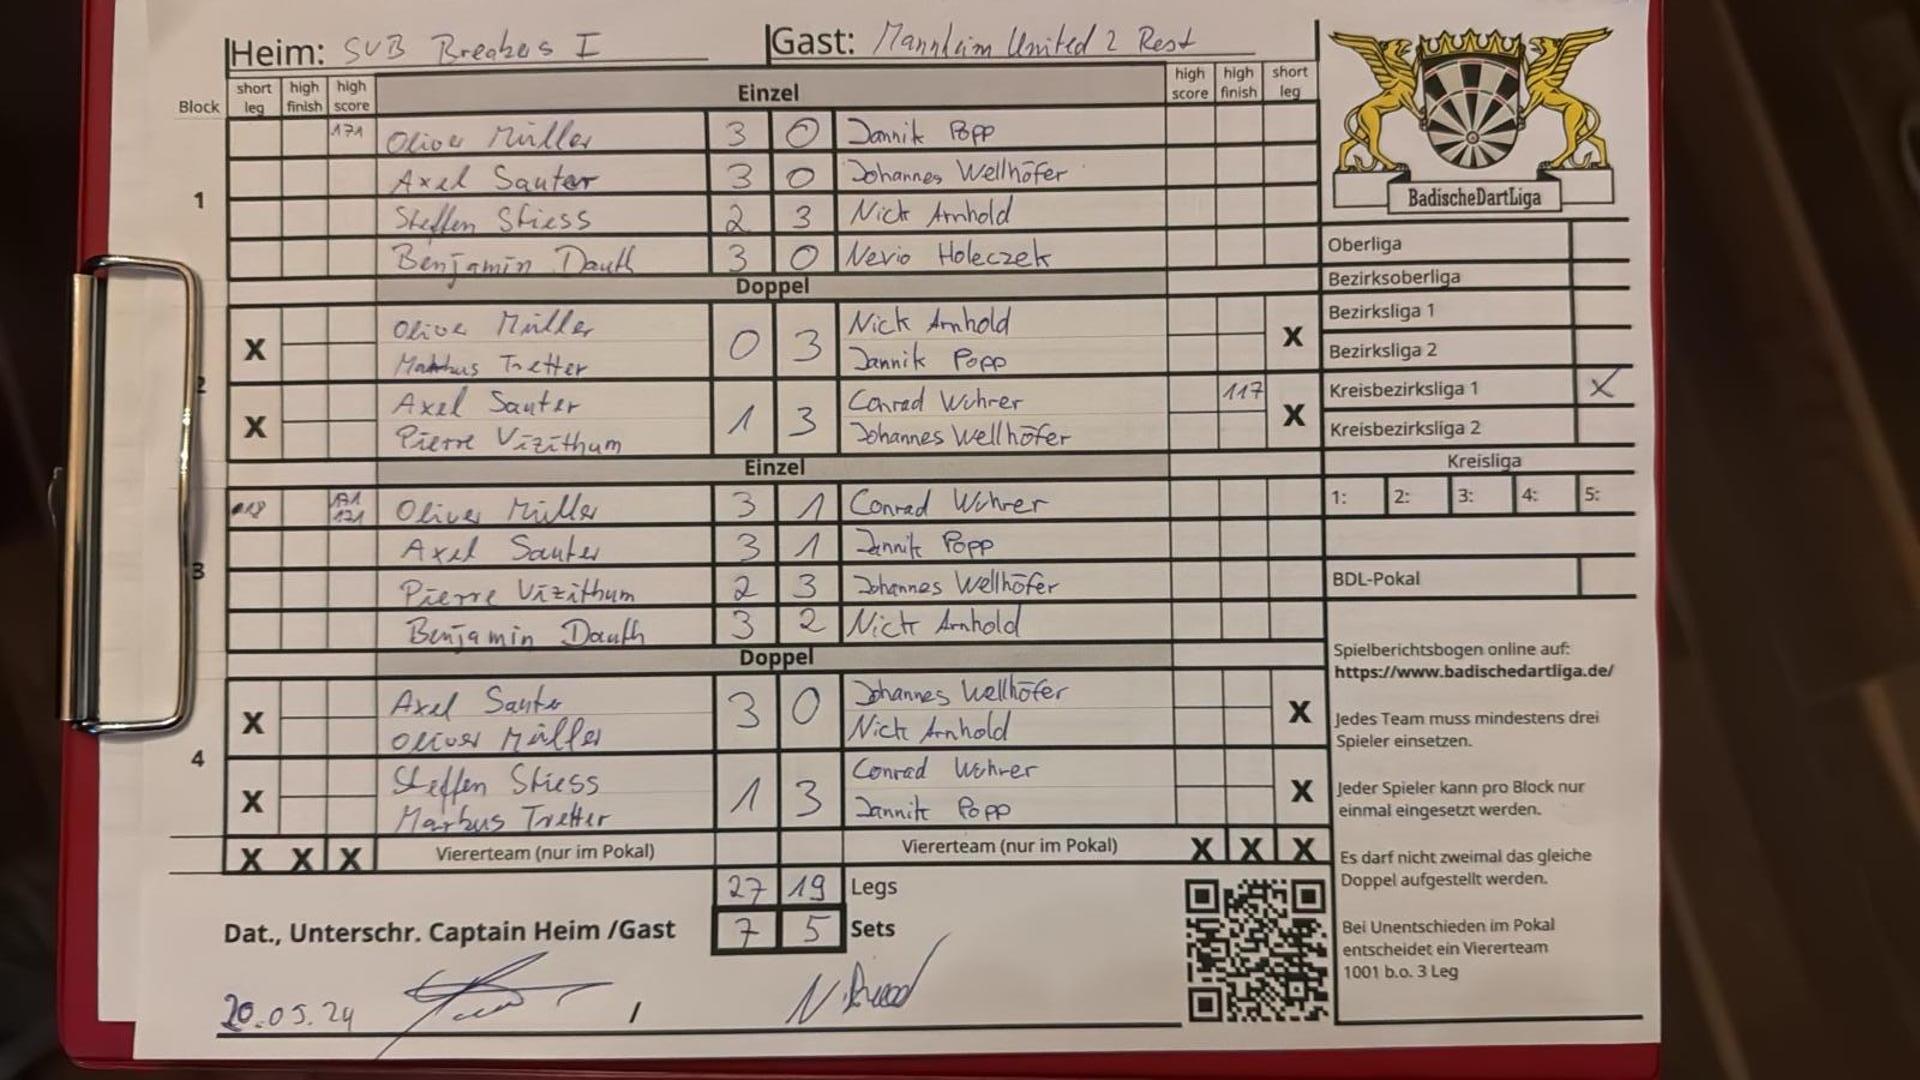 Heim: SVB Breakers I Gast: Mannheim United 2 Rest
Block short leg high finish high score Einzel high score high finish short leg
171 Oliver Müller 3 0 Jannik Popp
Axel Sauter 3 0 Johannes Wellhöfer
1
Steffen Stiess 2 3 Nick Arnhold
Benjamin Dauth 3 0 Nevio Holeczek
Doppel
X Oliver Müller 0 3 Nick Arnhold X
Markus Tretter Jannik Popp
2
X Axel Sauter 1 3 Conrad Wührer 117 X
Pierre Vizithum Johannes Wellhöfer
Einzel
18 171 Oliver Müller 3 1 Conrad Wührer
171
Axel Sauter 3 1 Jannik Popp
3
Pierre Vizithum 2 3 Johannes Wellhöfer
Benjamin Dauth 3 2 Nick Arnhold
Doppel
X Axel Sauter 3 0 Johannes Wellhöfer X
Oliver Müller Nick Arnhold
4
X Steffen Stiess 1 3 Conrad Wührer X
Markus Tretter Jannik Popp
X X X Viererteam (nur im Pokal) Viererteam (nur im Pokal) X X X
27 19 Legs
Dat., Unterschr. Captain Heim /Gast 7 5 Sets
20.05.24 /
BadischeDartLiga
Oberliga
Bezirksoberliga
Bezirksliga 1
Bezirksliga 2
Kreisbezirksliga 1 X
Kreisbezirksliga 2
Kreisliga
1: 2: 3: 4: 5:
BDL-Pokal
Spielberichtsbogen online auf:
https://www.badischedartliga.de/
Jedes Team muss mindestens drei
Spieler einsetzen.
Jeder Spieler kann pro Block nur
einmal eingesetzt werden.
Es darf nicht zweimal das gleiche
Doppel aufgestellt werden.
Bei Unentschieden im Pokal
entscheidet ein Viererteam
1001 b.o. 3 Leg